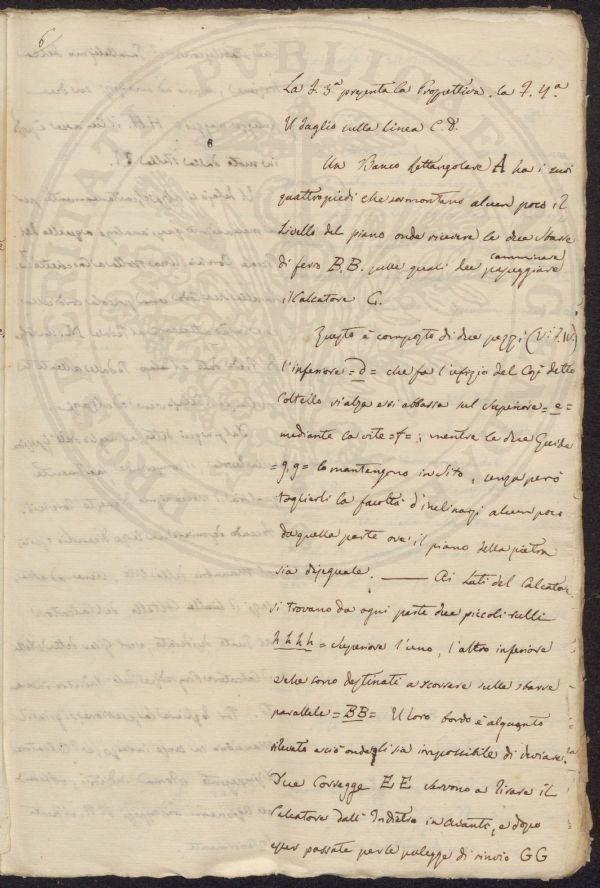 6
La F. 3ª presenta la Prospettiva. la F. 4ª.
Il taglio sulla linea C.D.
Un Banco Rettangolare A ha i suoi
quattro piedi che sormontano alcun poco il
Livello del piano onde ricevere le due sbarre
di ferro B.B. sulle quali dee camminare passeggiare
il Calcatore C.
Questo è composto di due pezzi (V. F. IV.)
l'inferiore = d = che fa l'ufizio del Cosí detto
Coltello si alza e si abbassa sul Superiore = e =
mediante la vite = f = ; mentre le due Guide
= g. g = lo mantengono in Sito, senza però
togliersi la facoltà d'inclinarsi alcun poco
da quella parte ove il piano della pietra
sia diseguale. — Ai Lati del Calcatore
si trovano da ogni parte due piccoli rulli
h h h h = Superiore l'uno, l'altro inferiore
e che sono destinati a scorrere sulle sbarre
parallele = BB = Il loro bordo è alquanto
rilevato a ciò onde gli sia impossibile di deviare.
Due Coregge E E servono a tirare il
Calcatore dall' Indietro in Avanti, e dopo
esser passate per le pulegge di rinvio GG